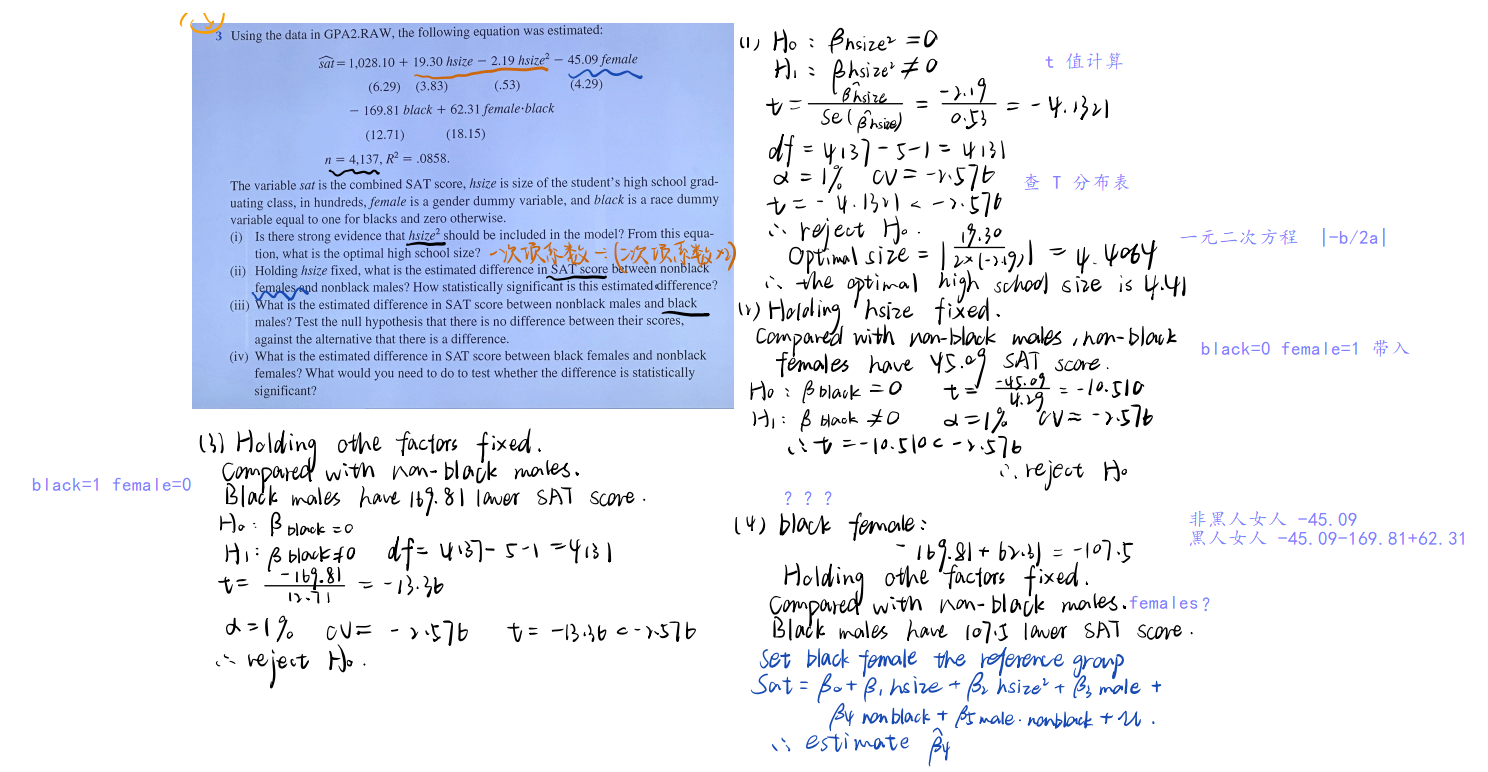 (、ン)
3 Using the data in GPA2.RAW, the following equation was estimated:
sat^ = 1,028.10 + 19.30 hsize − 2.19 hsize² − 45.09 female
(6.29) (3.83) (.53) (4.29)
− 169.81 black + 62.31 female·black
(12.71) (18.15)
n = 4,137, R² = .0858.
The variable sat is the combined SAT score, hsize is size of the student's high school grad-
uating class, in hundreds, female is a gender dummy variable, and black is a race dummy
variable equal to one for blacks and zero otherwise.
(i) Is there strong evidence that hsize² should be included in the model? From this equa-
tion, what is the optimal high school size? 一次项系数÷(二次项系数×2)
(ii) Holding hsize fixed, what is the estimated difference in SAT score between nonblack
females and nonblack males? How statistically significant is this estimated difference?
(iii) What is the estimated difference in SAT score between nonblack males and black
males? Test the null hypothesis that there is no difference between their scores,
against the alternative that there is a difference.
(iv) What is the estimated difference in SAT score between black females and nonblack
females? What would you need to do to test whether the difference is statistically
significant?
(1) H₀: βhsize² = 0
H₁: βhsize² ≠ 0
t 值计算
t = β^hsize / Se(β^hsize) = -2.19 / 0.53 = -4.1321
df = 4137 - 5 - 1 = 4131
α = 1% CV = -2.576
查 T 分布表
t = -4.1321 < -2.576
∴ reject H₀.
Optimal size = | 19.30 / 2×(-2.19) | = 4.4064
一元二次方程 |-b/2a|
∴ the optimal high school size is 4.41
(2) Holding hsize fixed.
Compared with non-black males, non-black
females have 45.09 SAT score.
black=0 female=1 带入
H₀: βblack = 0 t = -45.09 / 4.29 = -10.510
H₁: βblack ≠ 0 α = 1% CV = -2.576
∴ t = -10.510 < -2.576
∴ reject H₀
(3) Holding othe factors fixed.
Compared with non-black males.
black=1 female=0
Black males have 169.81 lower SAT score.
H₀: βblack = 0
H₁: βblack ≠ 0 df = 4137 - 5 - 1 = 4131
t = -169.81 / 12.71 = -13.36
α = 1% CV = -2.576 t = -13.36 < -2.576
∴ reject H₀.
? ? ?
(4) black female:
非黑人女人 -45.09
黑人女人 -45.09-169.81+62.31
- 169.81 + 62.31 = -107.5
Holding othe factors fixed.
Compared with non-black males. females?
Black males have 107.5 lower SAT score.
Set black female the reference group
Sat = β₀ + β₁ hsize + β₂ hsize² + β₃ male +
β₄ nonblack + β₅ male·nonblack + u.
∴ estimate β^₄